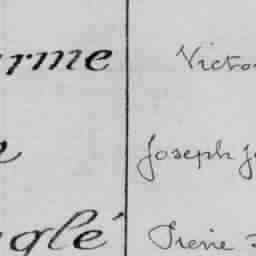 rme Victo
Joseph J
glé Irène